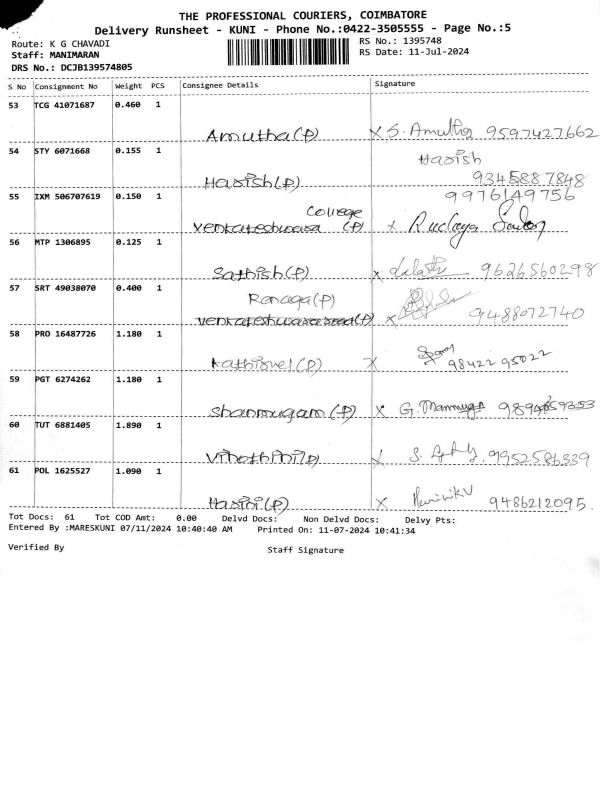 THE PROFESSIONAL COURIERS, COIMBATORE
Delivery Runsheet - KUNI - Phone No.:0422-3505555 - Page No.:5
Route: K G CHAVADI
RS No.: 1395748
Staff: MANIMARAN
RS Date: 11-Jul-2024
DRS No.: DCJB139574805
S No Consignment No Weight PCS Consignee Details Signature
53 TCG 41071687 0.460 1
Amutha(P) X S. Amutha 9597427662
54 STY 6071668 0.155 1
Harish
Harish(P) 9345887848
55 IXM 506707619 0.150 1
9976149756
College
Venkateshwara (P) x
56 MTP 1306895 0.125 1
Sathish(P) x 9626560298
57 SRT 49038070 0.400 1
Ranaga(P)
(P) x 9488072740
58 PRO 16487726 1.180 1
Kathirvel(P) X 98422 95022
59 PGT 6274262 1.180 1
Shanmugam(P) x G.
60 TUT 6881405 1.890 1
Vinothini(P) S. 9952586339
61 POL 1625527 1.090 1
Harini(P) x 9486212095.
Tot Docs: 61 Tot COD Amt: 0.00 Delvd Docs: Non Delvd Docs: Delvy Pts:
Entered By :MARESKUNI 07/11/2024 10:40:40 AM Printed On: 11-07-2024 10:41:34
Verified By Staff Signature